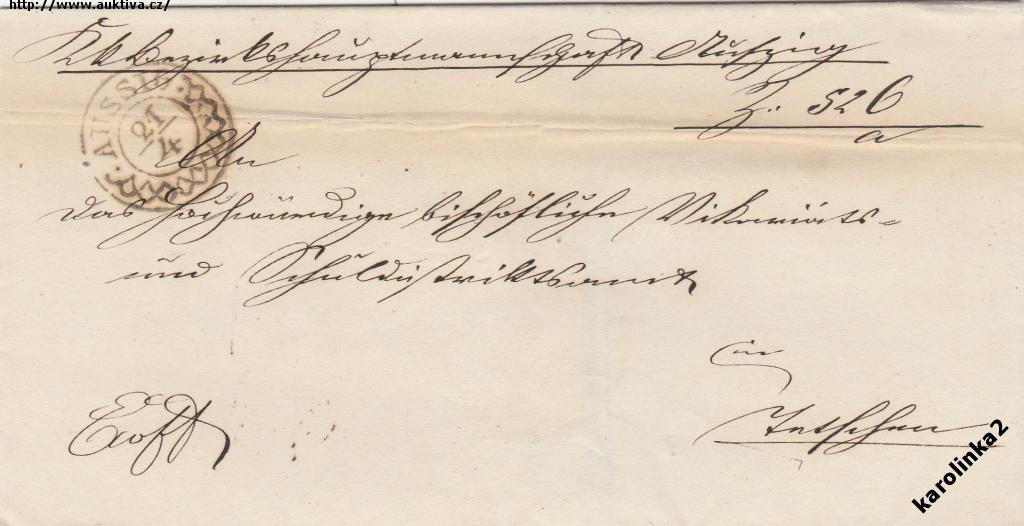 http://www.auktiva.cz/
KK Bezirkshauptmannschaft Aussig
Z. 526
a
AUSSIG
21/4
An
das hochwürdige bischöfliche Vikariats-
und Schuldistriktsamt
in
Exoff
Tetschen
karolinka2